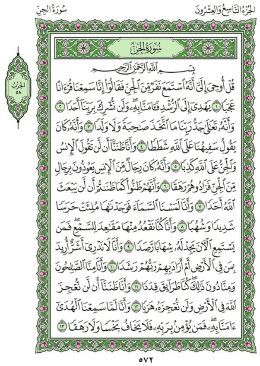 الجُزْءُ التَّاسِعُ وَالعِشْرُونَ
سُورَةُ الجِنّ
سُورَةُ الجِنّ
بِسْمِ ٱللَّهِ ٱلرَّحْمَـٰنِ ٱلرَّحِيمِ
قُلْ أُوحِىَ إِلَىَّ أَنَّهُ ٱسْتَمَعَ نَفَرٌ مِّنَ ٱلْجِنِّ فَقَالُوٓا۟ إِنَّا سَمِعْنَا قُرْءَانًا
عَجَبًا ١ يَهْدِىٓ إِلَى ٱلرُّشْدِ فَـَٔامَنَّا بِهِۦ وَلَن نُّشْرِكَ بِرَبِّنَآ أَحَدًا ٢
وَأَنَّهُۥ تَعَـٰلَىٰ جَدُّ رَبِّنَا مَا ٱتَّخَذَ صَـٰحِبَةً وَلَا وَلَدًا ٣ وَأَنَّهُۥ كَانَ
يَقُولُ سَفِيهُنَا عَلَى ٱللَّهِ شَطَطًا ٤ وَأَنَّا ظَنَنَّآ أَن لَّن تَقُولَ ٱلْإِنسُ
وَٱلْجِنُّ عَلَى ٱللَّهِ كَذِبًا ٥ وَأَنَّهُۥ كَانَ رِجَالٌ مِّنَ ٱلْإِنسِ يَعُوذُونَ بِرِجَالٍ
مِّنَ ٱلْجِنِّ فَزَادُوهُمْ رَهَقًا ٦ وَأَنَّهُمْ ظَنُّوا۟ كَمَا ظَنَنتُمْ أَن لَّن يَبْعَثَ
ٱللَّهُ أَحَدًا ٧ وَأَنَّا لَمَسْنَا ٱلسَّمَآءَ فَوَجَدْنَـٰهَا مُلِئَتْ حَرَسًا
شَدِيدًا وَشُهُبًا ٨ وَأَنَّا كُنَّا نَقْعُدُ مِنْهَا مَقَـٰعِدَ لِلسَّمْعِ ۖ فَمَن
يَسْتَمِعِ ٱلْـَٔانَ يَجِدْ لَهُۥ شِهَابًا رَّصَدًا ٩ وَأَنَّا لَا نَدْرِىٓ أَشَرٌّ أُرِيدَ
بِمَن فِى ٱلْأَرْضِ أَمْ أَرَادَ بِهِمْ رَبُّهُمْ رَشَدًا ١٠ وَأَنَّا مِنَّا ٱلصَّـٰلِحُونَ
وَمِنَّا دُونَ ذَٰلِكَ ۖ كُنَّا طَرَآئِقَ قِدَدًا ١١ وَأَنَّا ظَنَنَّآ أَن لَّن نُّعْجِزَ
ٱللَّهَ فِى ٱلْأَرْضِ وَلَن نُّعْجِزَهُۥ هَرَبًا ١٢ وَأَنَّا لَمَّا سَمِعْنَا ٱلْهُدَىٰٓ
ءَامَنَّا بِهِۦ ۖ فَمَن يُؤْمِنۢ بِرَبِّهِۦ فَلَا يَخَافُ بَخْسًا وَلَا رَهَقًا ١٣
الحِزْب
٥٨
٥٧٢